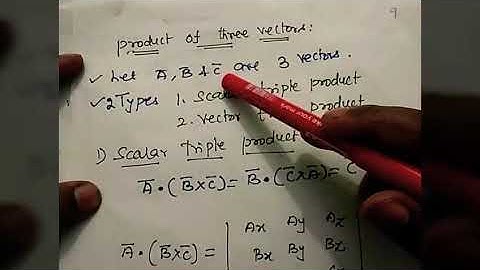 9
product of three vectors:
✓ Let A̅, B̅ & C̅ are 3 vectors.
✓ 2 Types 1. Scalar triple product
2. Vector product
1) Scalar triple product
A̅ • (B̅ × C̅) = B̅ • (C̅ × A̅) = C
A̅ • (B̅ × C̅) = | Ax Ay Az
Bx By Bz